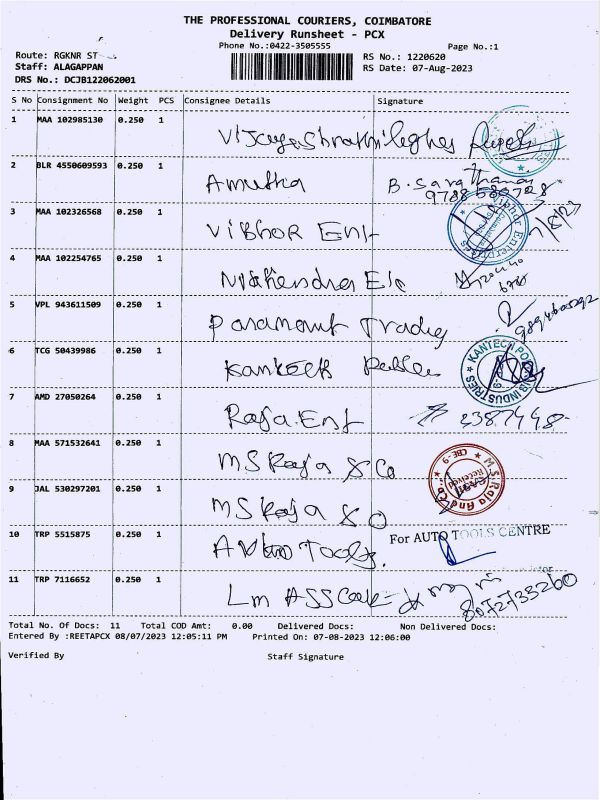 THE PROFESSIONAL COURIERS, COIMBATORE
Delivery Runsheet - PCX
Phone No.:0422-3505555
Page No.:1
Route: RGKNR ST
RS No.: 1220620
Staff: ALAGAPPAN
RS Date: 07-Aug-2023
DRS No.: DCJB122062001
S No Consignment No Weight PCS Consignee Details Signature
1 MAA 102985130 0.250 1
2 BLR 4550609593 0.250 1 Amutha B. Sarathanan
3 MAA 102326568 0.250 1 VIBHOR Ent
Vibhor Enterprises
4 MAA 102254765 0.250 1 Mahendra Ele
5 VPL 943611509 0.250 1 Paramount Trading
6 TCG 50439986 0.250 1 Kantech
KANTECH INDUSTRIES
7 AMD 27050264 0.250 1 Raja Ent
8 MAA 571532641 0.250 1 MS Raja & Co
M.S Raja And Co
CBE-9
Received
9 JAL 530297201 0.250 1 MS Raja & Co
10 TRP 5515875 0.250 1 Auto Tools
For AUTO TOOLS CENTRE
11 TRP 7116652 0.250 1 Lm
8072733260
Total No. Of Docs: 11 Total COD Amt: 0.00 Delivered Docs: Non Delivered Docs:
Entered By :REETAPCX 08/07/2023 12:05:11 PM Printed On: 07-08-2023 12:06:00
Verified By Staff Signature